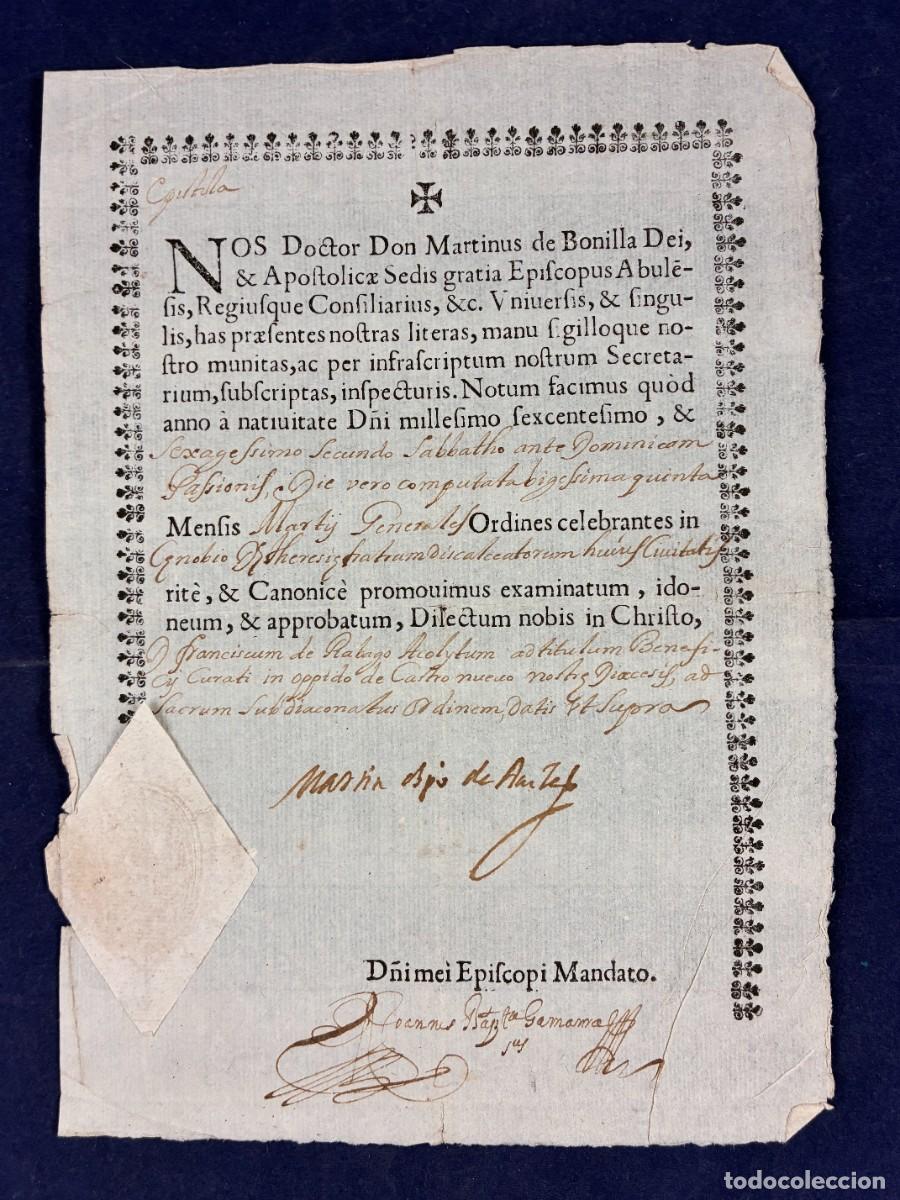 Epistola
NOS Doctor Don Martinus de Bonilla Dei,
& Apostolicæ Sedis gratia Episcopus Abulē-
sis, Regiusque Consiliarius, &c. Vniuersis, & singu-
lis, has præsentes nostras literas, manu sigilloque no-
stro munitas, ac per infrascriptum nostrum Secreta-
rium, subscriptas, inspecturis. Notum facimus quòd
anno à natiuitate Dñi millesimo sexcentesimo, &
Sexagessimo Secundo Sabbatho ante Dominicam
Passionis, Die vero computata bigessima quinta
Mensis Martij Generales Ordines celebrantes in
fratrum discalceatorum huius Ciuitatis
ritè, & Canonicè promouimus examinatum, ido-
neum, & approbatum, Dilectum nobis in Christo,
D Franciscum de Rabago Acolytum ad titulum Benefi-
cij Curati in oppido de Castro nuevo nostrę Diœcesis, ad
Sacrum Subdiaconatus Ordinem, datis Ut Supra
Martin obpo de
Dñi mei Episcopi Mandato.
Joannes Bapta
sus
todocoleccion